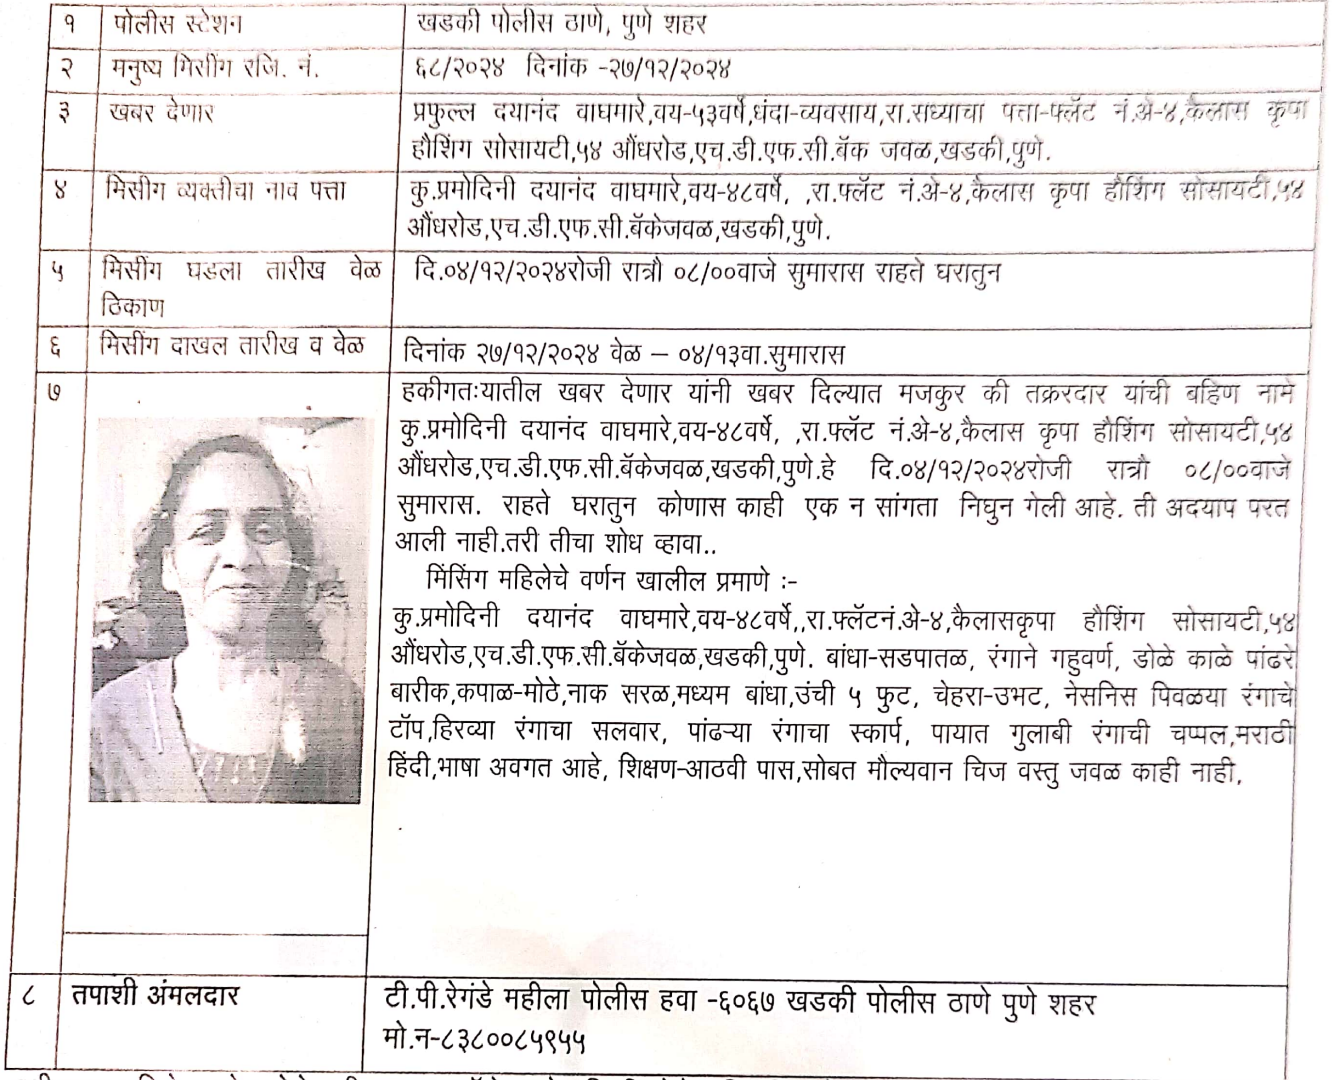 १ पोलीस स्टेशन खडकी पोलीस ठाणे, पुणे शहर
२ मनुष्य मिसींग रजि. नं. ६८/२०२४ दिनांक -२७/१२/२०२४
३ खबर देणार प्रफुल्ल दयानंद वाघमारे,वय-५३वर्षे,धंदा-व्यवसाय,रा.सध्याचा पत्ता-फ्लॅट नं.अे-४,कैलास कृपा
हौशिंग सोसायटी,५४ औंधरोड,एच.डी.एफ.सी.बॅक जवळ,खडकी,पुणे.
४ मिसीग व्यक्तीचा नाव पत्ता कु.प्रमोदिनी दयानंद वाघमारे,वय-४८वर्षे, ,रा.फ्लॅट नं.अे-४,कैलास कृपा हौशिंग सोसायटी,५४
औंधरोड,एच.डी.एफ.सी.बॅकेजवळ,खडकी,पुणे.
५ मिसींग घडला तारीख वेळ दि.०४/१२/२०२४रोजी रात्रौ ०८/००वाजे सुमारास राहते घरातुन
ठिकाण
६ मिसींग दाखल तारीख व वेळ दिनांक २७/१२/२०२४ वेळ – ०४/१३वा.सुमारास
७ हकीगतःयातील खबर देणार यांनी खबर दिल्यात मजकुर की तक्ररदार यांची बहिण नामे
कु.प्रमोदिनी दयानंद वाघमारे,वय-४८वर्षे, ,रा.फ्लॅट नं.अे-४,कैलास कृपा हौशिंग सोसायटी,५४
औंधरोड,एच.डी.एफ.सी.बॅकेजवळ,खडकी,पुणे.हे दि.०४/१२/२०२४रोजी रात्रौ ०८/००वाजे
सुमारास. राहते घरातुन कोणास काही एक न सांगता निघुन गेली आहे. ती अदयाप परत
आली नाही.तरी तीचा शोध व्हावा..
मिंसिंग महिलेचे वर्णन खालील प्रमाणे :-
कु.प्रमोदिनी दयानंद वाघमारे,वय-४८वर्षे,,रा.फ्लॅटनं.अे-४,कैलासकृपा हौशिंग सोसायटी,५४
औंधरोड,एच.डी.एफ.सी.बॅकेजवळ,खडकी,पुणे. बांधा-सडपातळ, रंगाने गहुवर्ण, डोळे काळे पांढरे
बारीक,कपाळ-मोठे,नाक सरळ,मध्यम बांधा,उंची ५ फुट, चेहरा-उभट, नेसनिस पिवळया रंगाचे
टॉप,हिरव्या रंगाचा सलवार, पांढऱ्या रंगाचा स्कार्प, पायात गुलाबी रंगाची चप्पल,मराठी
हिंदी,भाषा अवगत आहे, शिक्षण-आठवी पास,सोबत मौल्यवान चिज वस्तु जवळ काही नाही,
८ तपाशी अंमलदार टी.पी.रेगंडे महीला पोलीस हवा -६०६७ खडकी पोलीस ठाणे पुणे शहर
मो.न-८३८००८५९५५